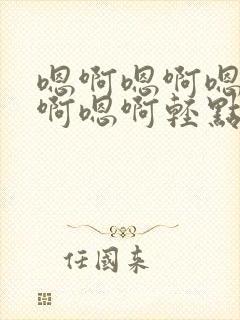 嗯啊嗯啊嗯
啊嗯啊輕點
任國来